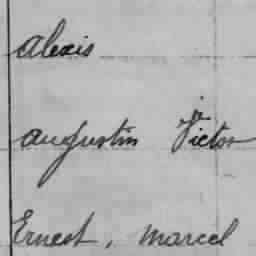 alexis
augustin Victor
Ernest, marcel